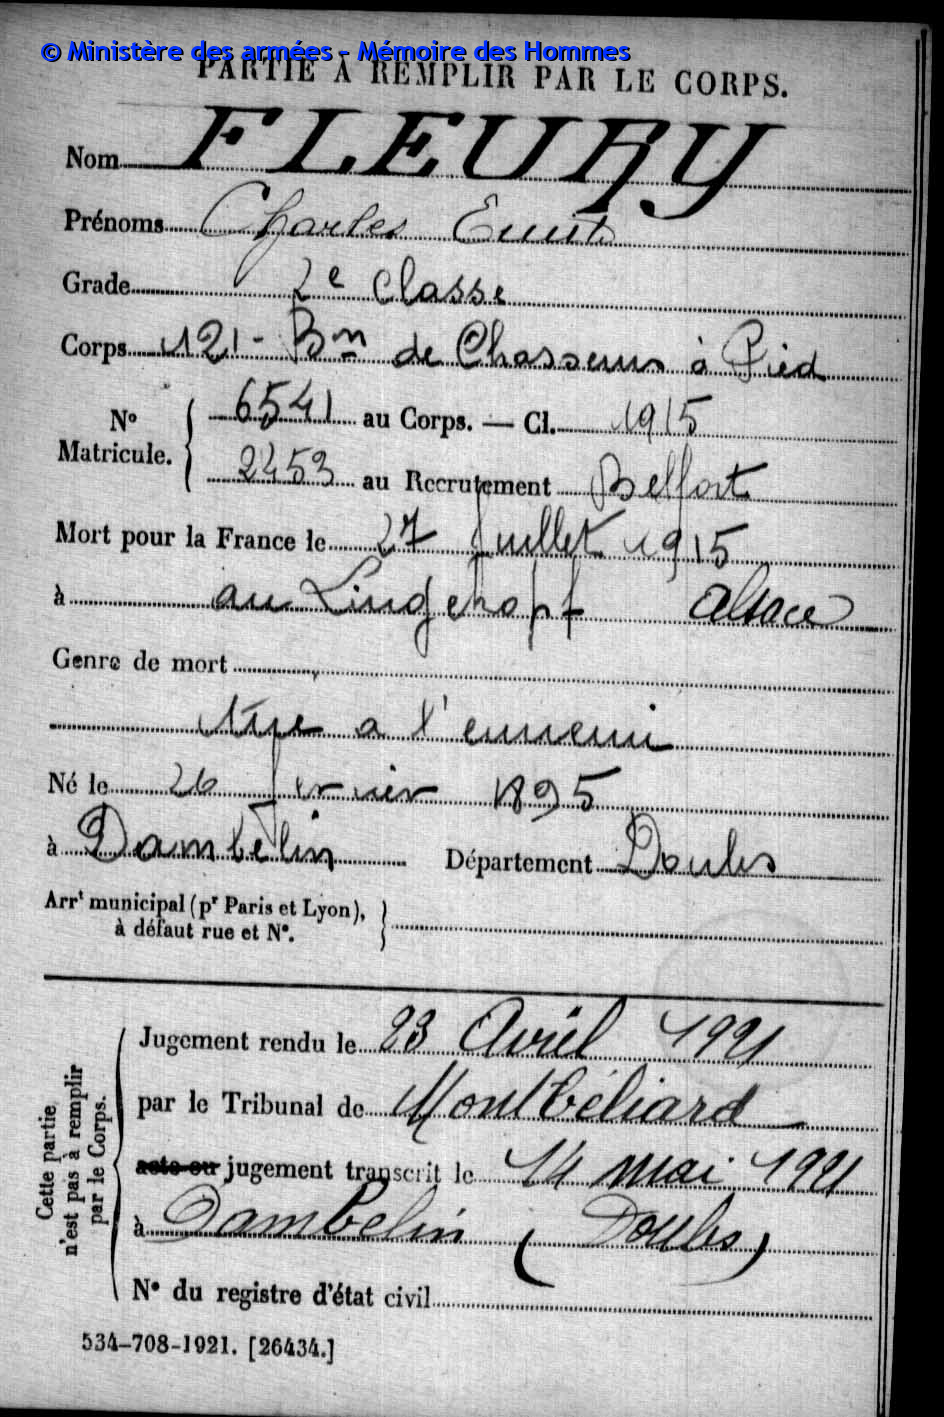 © Ministère des armées - Mémoire des Hommes
PARTIE À REMPLIR PAR LE CORPS.
Nom FLEURY
Prénoms Charles Emile
Grade 2e classe
Corps 121- Bn de Chasseurs à Pied
No Matricule. 6541 au Corps. — Cl. 1915
2453 au Recrutement Belfort
Mort pour la France le 27 Juillet 1915
à au Lingekopf Alsace
Genre de mort
tué a l'ennemi
Né le 26 fevrier 1895
à Dambelin Département Doubs
Arrt municipal (pr Paris et Lyon),
à défaut rue et No.
Cette partie n'est pas à remplir par le Corps.
Jugement rendu le 23 Avril 1921
par le Tribunal de Montbéliard
acte ou jugement transcrit le 14 mai 1921
à Dambelin (Doubs)
No du registre d'état civil
534-708-1921. [26434.]